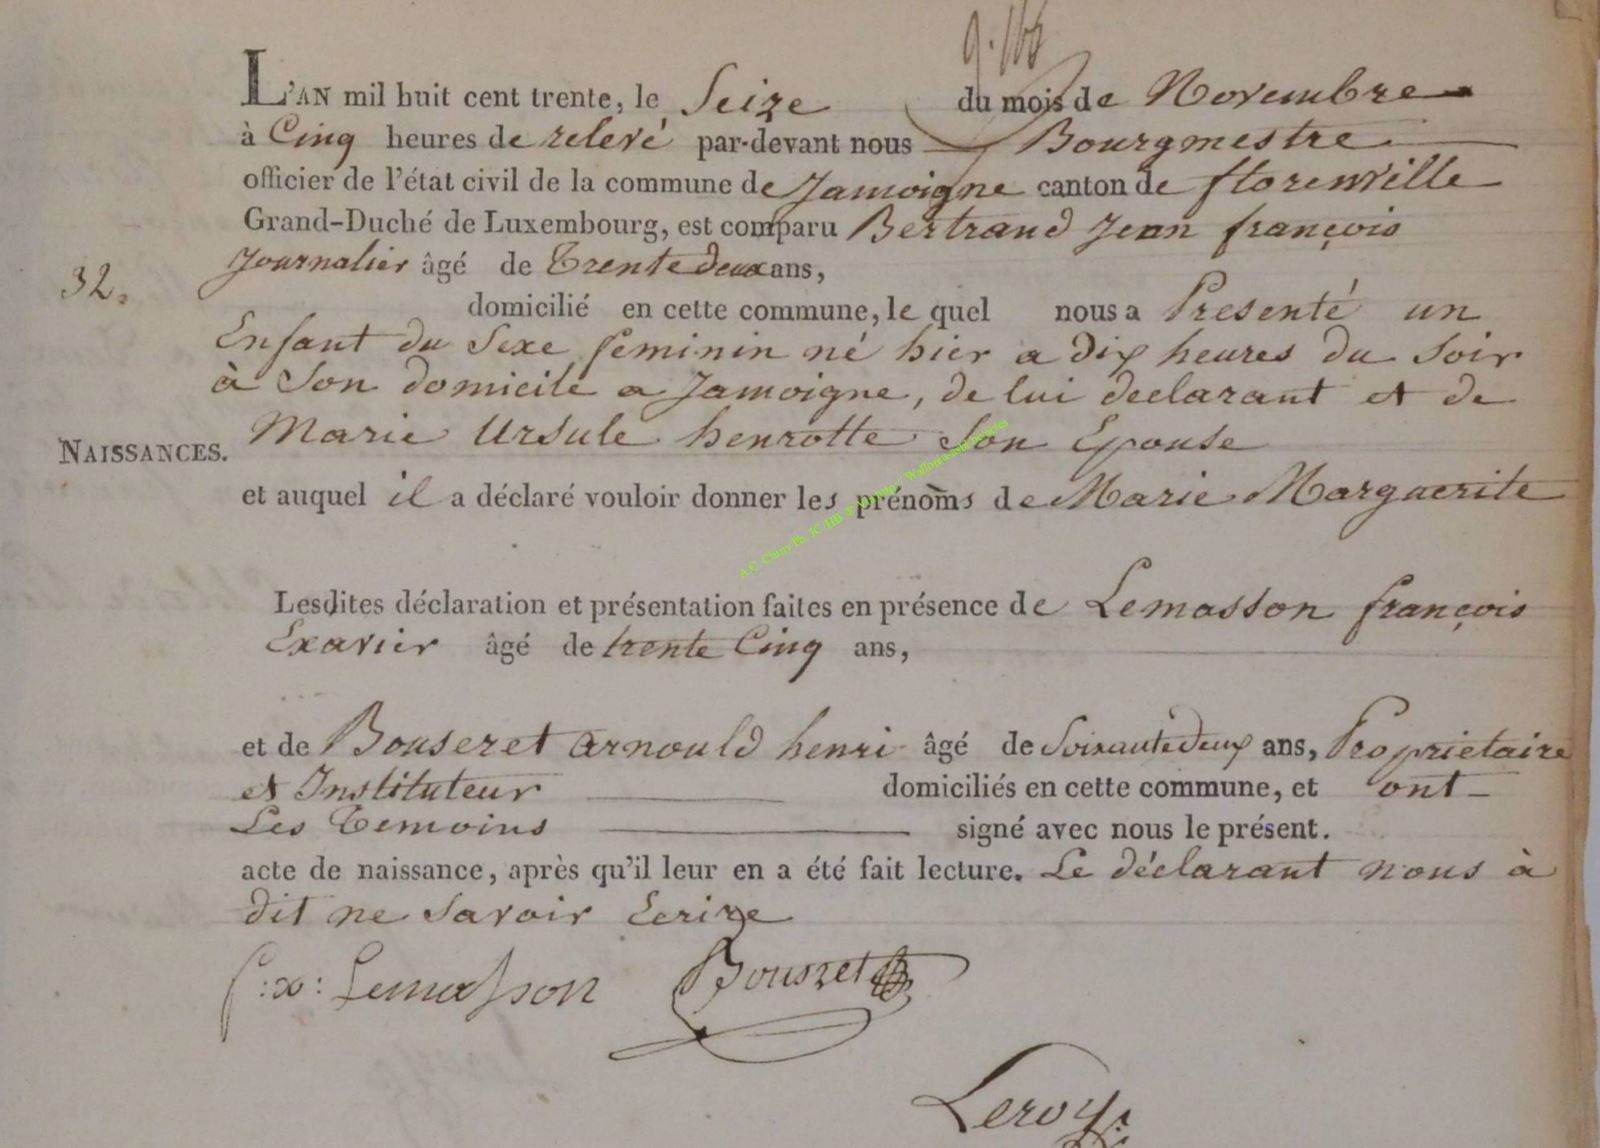 9.bre
L'AN mil huit cent trente, le Seize du mois de Novembre
à Cinq heures de relevé par-devant nous Bourgmestre
officier de l'état civil de la commune de Jamoigne canton de florenville
Grand-Duché de Luxembourg, est comparu Bertrand Jean françois
Journalier âgé de Trente deux ans,
32.
domicilié en cette commune, le quel nous a Presenté un
Enfant du Sexe feminin né hier a dix heures du Soir
à Son domicile a Jamoigne, de lui declarant et de
NAISSANCES.
Marie Ursule henrotte Son Epouse
et auquel il a déclaré vouloir donner les prénoms de Marie Marguerite
Lesdites déclaration et présentation faites en présence de Lemasson françois
Exavier âgé de trente Cinq ans,
et de Bouseret arnould henri âgé de Soixante deux ans, Proprietaire
et Instituteur domiciliés en cette commune, et ont
Les Temoins signé avec nous le présent.
acte de naissance, après qu'il leur en a été fait lecture. Le déclarant nous à
dit ne Savoir Ecrire
f:x: Lemasson Bousret
Leroy